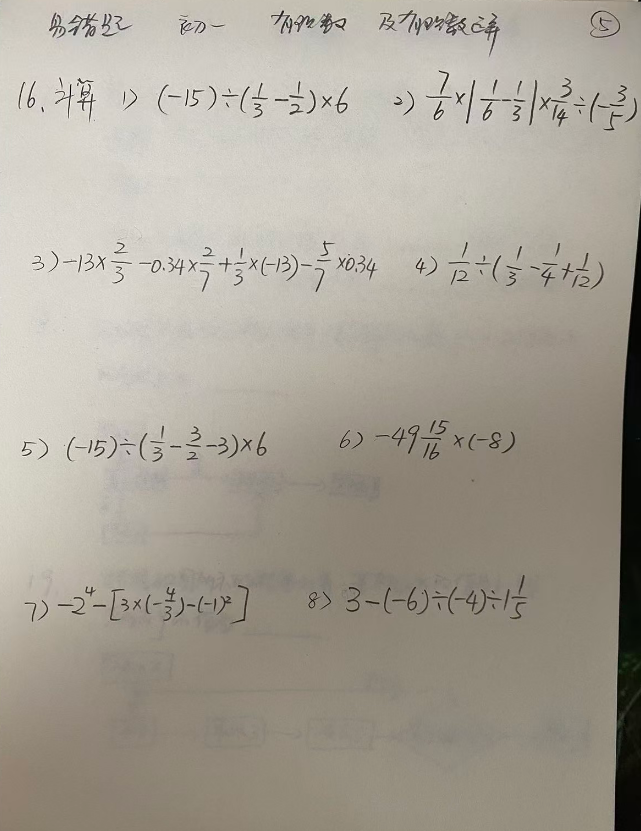 易错题 初一 有理数 及有理数运算 ⑤
16、计算 1) (-15)÷(1/3-1/2)×6 2) 7/6×|1/6-1/3|×3/14÷(-3/5)
3) -13×2/3-0.34×2/7+1/3×(-13)-5/7×0.34 4) 1/12÷(1/3-1/4+1/12)
5) (-15)÷(1/3-3/2-3)×6 6) -49 15/16×(-8)
7) -2⁴-[3×(-4/3)-(-1)²] 8) 3-(-6)÷(-4)÷1 1/5